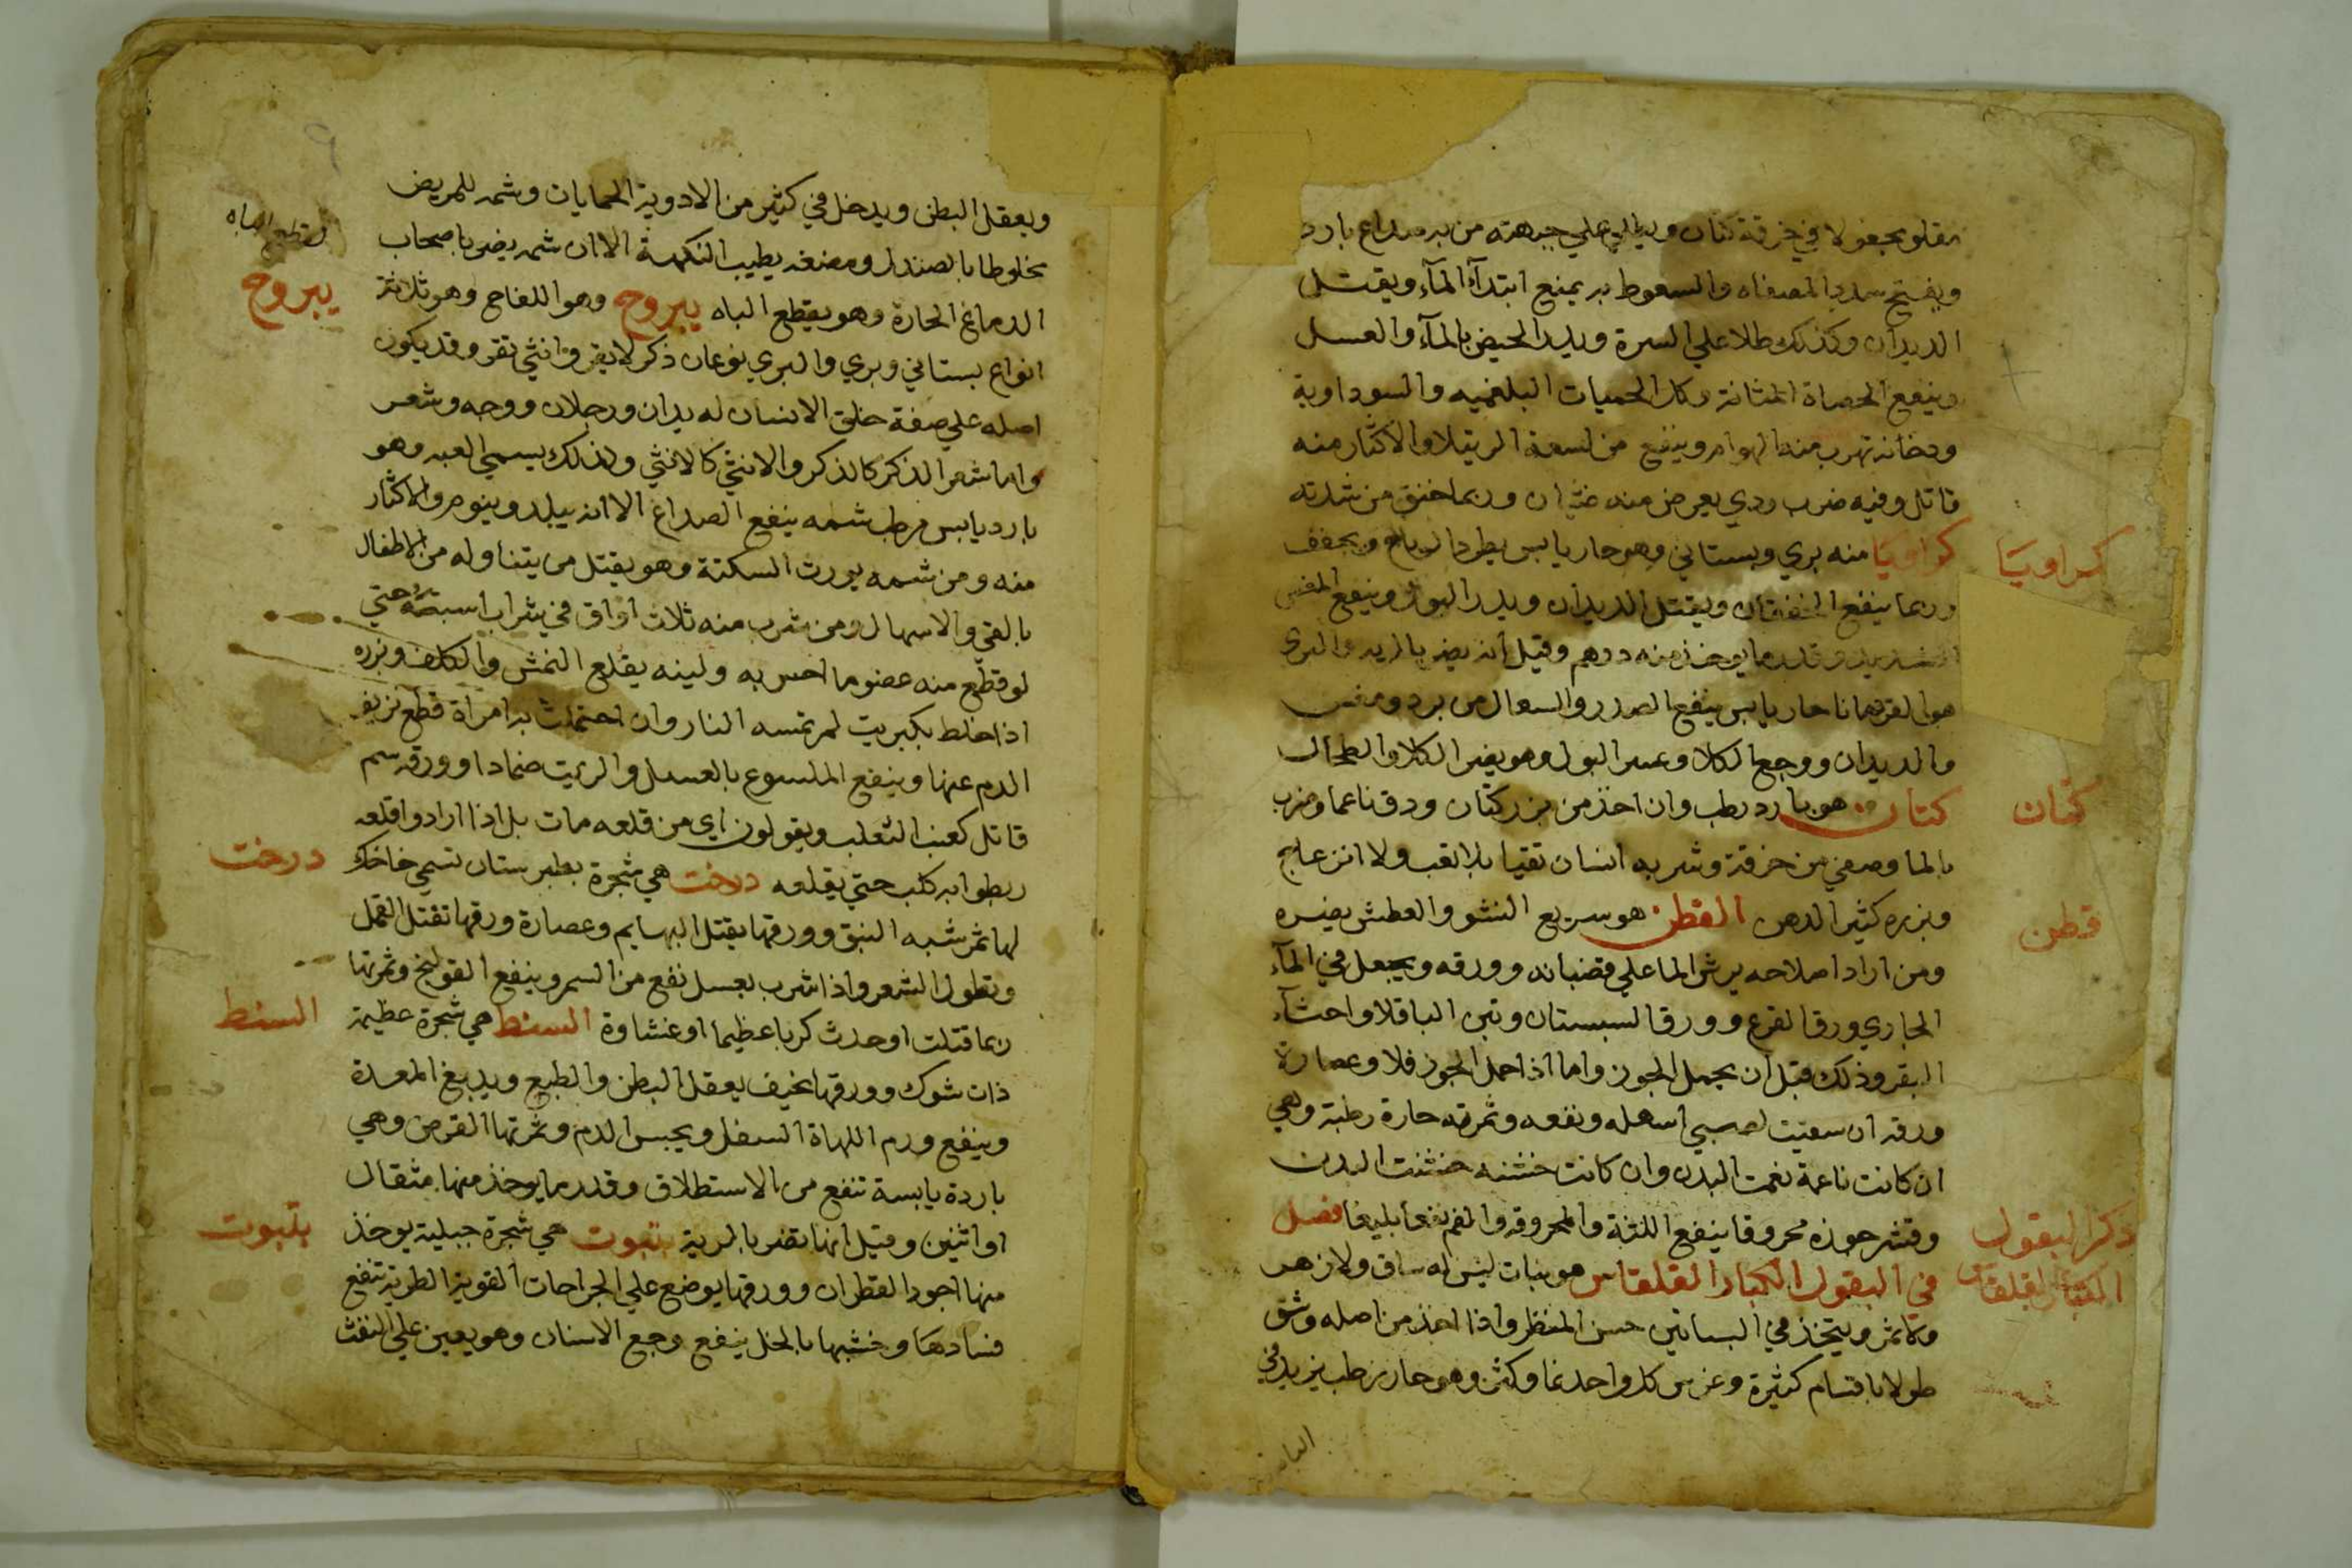 مقلو مجعولا في خرقة كتان ويطلي علي جبهته من به صداع بارد
ويفتح سدد المصفاه والسعوط به يمنع ابتدآء المآء ويقتل
الديدان وكذلك طلا علي السرة ويدر الحيض بالمآء والعسل
وينفع الحصاة المثانة وكل الحميات البلغميه والسوداوية
ودخانه تهرب منه الهوام وينفع من لسعة الرتيلا والاكثار منه
قاتل وفيه ضرب ردي يعرض منه غثيان وربما خنق من شدته
كراويا منه بري وبستاني وهو حار يابس يطرد الرياح ويجفف
كراويا
وربما ينفع الخفقان ويقتل الديدان ويدر البول وينفع المغس
الشديد وقدر ما يوخذ منه درهم وقيل انه يضر بالريه والبري
هو القردمانا حار يابس ينفع الصدر والسعال من برد ومغس
والديدان ووجع الكلا وعسر البول وهو يضر الكلا والطحال
كتان هو بارد رطب وان اخذ من بزر كتان ودق ناعما وضرب
كتان
بالما وصفي من خرقة وشربه انسان تقيا بلا تعب ولا انزعاج
وبزره كثير الدهن القطن هو سريع النشو والعطش يضره
قطن
ومن اراد اصلاحه يرش الما علي قضبانه وورقه ويجعل في المآء
الجاري ورق القرع وورق السبستان وتبن الباقلا واحثآء
البقر وذلك قبل ان يحمل الجوز واما اذا حمل الجوز فلا وعصارة
ورقه ان سقيت لصبي اسهله ونفعه وثمرته حارة رطبة وهي
ان كانت ناعمة نعمت البدن وان كانت خشنه خشنت البدن
وقشر جوزه محروقا ينفع اللثة والمحروقه والفم نفعا بليغا فصل
ذكر البقول
في البقول الكبار القلقاس هو نبات ليس له ساق ولا زهر
الكبار القلقاس
ولا ثمر ويتخذ في البساتين حسن المنظر واذا اخذ من اصله وشق
طولا باقسام كثيرة وغرس كل واحد نما وكثر وهو حار رطب يزيد في
الباه
٩
ويعقل البطن ويدخل في كثير من الادوية الحمايات وشمه للمريض
مخلوطا بالصندل ومضغه يطيب النكهة الا ان شمه يضر باصحاب
لقطع الباه
الدماغ الحارة وهو يقطع الباه يبروح وهو اللفاح وهو ثلاثة
يبروح
انواع بستاني وبري والبري نوعان ذكر لا يقر وانثي تقر وقد يكون
اصله علي صفة خلق الانسان له يدان ورجلان ووجه وشعر
واما شعر الذكر كالذكر والانثي كالانثي ولذلك يسمي العبه وهو
بارد يابس فرط شمه ينفع الصداع الا انه يبلد وينوم والاكثار
منه ومن شمه يورث السكتة وهو يقتل من يتناوله من الاطفال
بالقي والاسهال ومن شرب منه ثلاث اواق في شراب اسبته حتي
لو قطع منه عضو ما احس به ولبنه يقلع النمش والكلف وبزره
اذا خلط بكبريت لم تمسه النار وان احتملت به امراة قطع نزيف
الدم عنها وينفع الملسوع بالعسل والزيت ضمادا وورقه سم
قاتل كعنب الثعلب ويقولون اي من قلعه مات بل اذا ارادوا قلعه
ربطوا به كلب حتي يقلعه درخت هي شجرة بطبرستان تسمي خاخك
درخت
لها ثمر شبه النبق وورقها يقتل البهايم وعصارة ورقها تقتل القمل
وتطول الشعر واذا شرب بعسل نفع من السم وينفع القولنج وثمرتها
ربما قتلت او حدث كربا عظيما او غشاوة السنط هي شجرة عظيمة
السنط
ذات شوك وورقها نحيف يعقل البطن والطبع ويدبغ المعدة
وينفع ورم اللهاة السفل ويحبس الدم وثمرتها القرض وهي
باردة يابسة تنفع من الاستطلاق وقدر ما يوخذ منها مثقال
او اثنين وقيل انها تضر بالرية بتبوت هي شجرة جبلية يوخذ
بتبوت
منها اجود القطران وورقها يوضع علي الجراحات القوية الطرية تنفع
فسادها وخشبها بالخل ينفع وجع الاسنان وهو يعين علي النفث